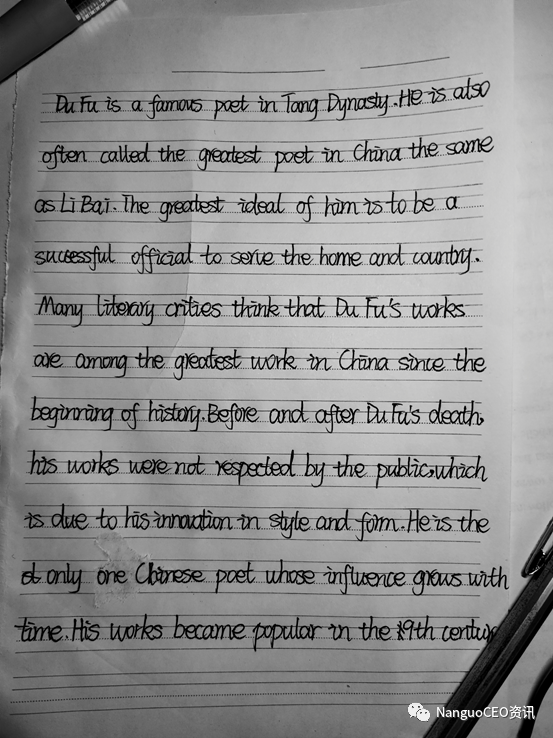 Du Fu is a famous poet in Tang Dynasty. He is also
often called the greatest poet in China the same
as Li Bai. The greatest ideal of him is to be a
successful official to serve the home and country.
Many literary crities think that Du Fu's works
are among the greatest work in China since the
beginning of history. Before and after Du Fu's death,
his works were not respected by the public, which
is due to his innovation in style and form. He is the
only one Chinese poet whose influence grows with
time. His works became popular in the 19th century
NanguoCEO资讯